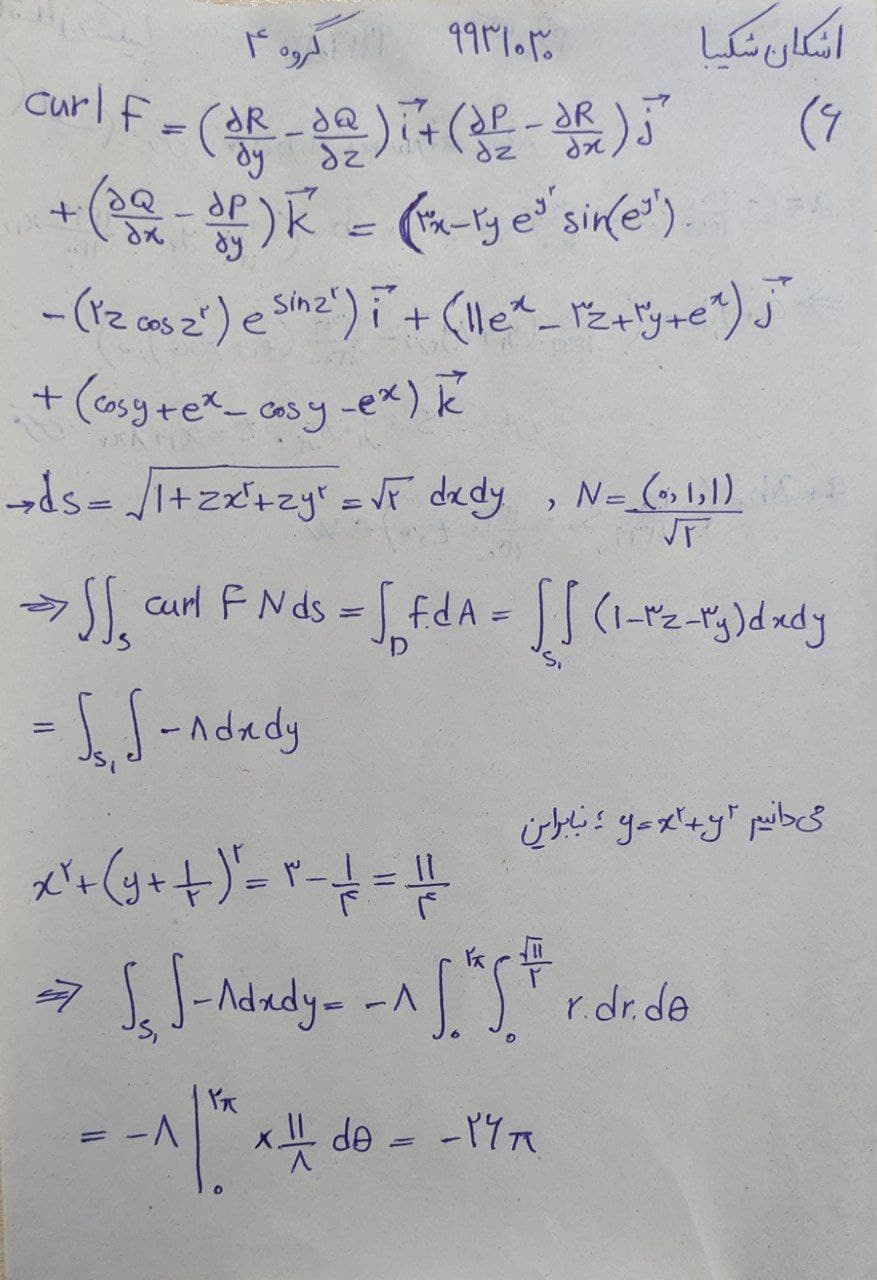 اشکان شکیبا ۹۹۳۱۰۳۰ گروه ۴
۶) curl F = (∂R/∂y - ∂Q/∂z) i⃗ + (∂P/∂z - ∂R/∂x) j⃗
+ (∂Q/∂x - ∂P/∂y) k⃗ = (۳x-۲y e^{y^۲} sin(e^{y^۲})
-(۲z cos z^۲) e^{sin z^۲}) i⃗ + (11e^x - ۳z+۳y+e^x) j⃗
+ (cosy+e^x - cosy -e^x) k⃗
→ds = √(1+zx^۲+zy^۲) = √۲ dxdy , N = (۰,1,1)/√۲
⇒ ∬_S curl F N ds = ∫_D f.dA = ∬_{S_1} (1-۳z-۳y)dxdy
= ∫_{S_1}∫ -۸dxdy
می‌دانیم y=x^۲+y^۲ ؛ بنابراین
x^۲+(y+1/۲)^۲ = ۳-1/۴ = 11/۴
⇒ ∫_{S_1}∫ -۸dxdy = -۸ ∫_۰^{۲π} ∫_۰^{√11/۲} r.dr.dθ
= -۸ |_۰^{۲π} × 11/۸ dθ = -۲۶π